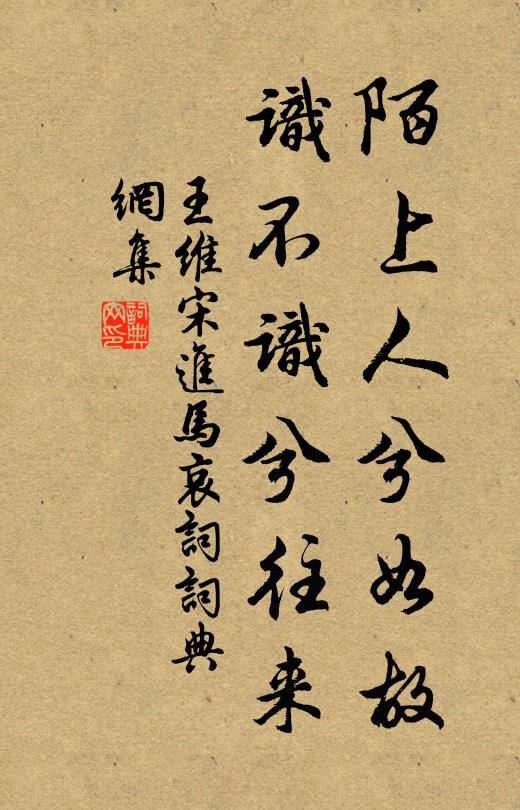 陌上人兮如故
識不識兮往来
王維宋進馬哀詞詞典
網集
詞典
网印